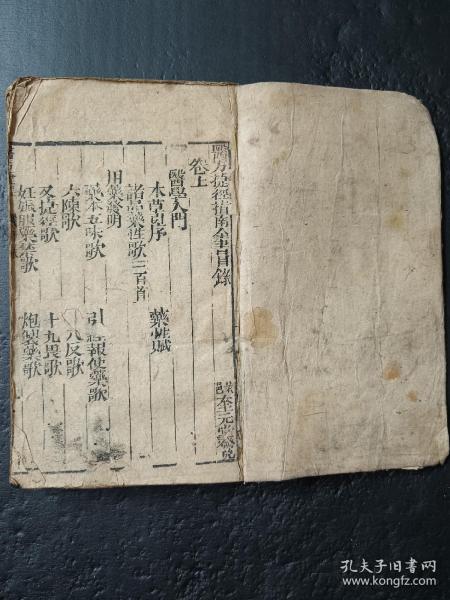 醫方捷徑指南全書目錄
卷上
醫學入門
本草引序 藥性賦
諸品藥性歌三百首
用藥發明
藥本五味歌 引經報使藥歌
六陳歌 十八反歌
又捷徑歌 十九畏歌
妊娠服藥禁歌 炮製藥歌
孔夫子旧书网
www.kongfz.com